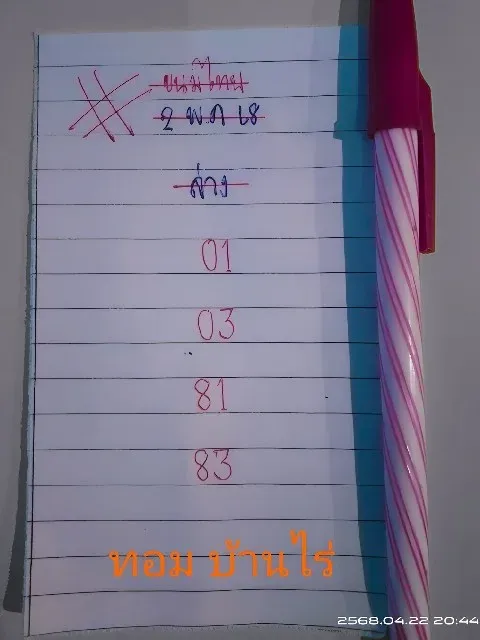 #ขนมไทย
2 พ.ค 68
ล่าง
01
03
81
83
ทอม บ้านไร่
2568.04.22 20:44